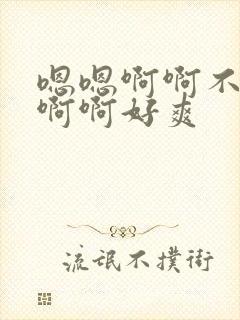 嗯嗯啊啊不
啊啊好爽
流氓不撲街